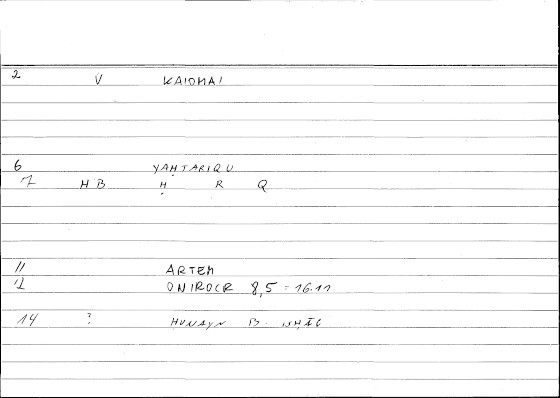 2 V KAIOMAI
6 YAḤTARIQU
7 HB Ḥ R Q
11 ARTEM
12 ONIROCR 8,5 = 16.11
14 ? HUNAYN B. ISḤĀQ